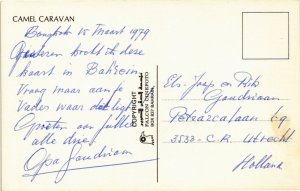 CAMEL CARAVAN
Bangkok 15 Maart 1979
Gisteren kocht ik deze
kaart in Bahrein
Vraag maar aan je
Vader waar dat ligt
Groeten aan jullie
alle drie
Opa Gaudriaan
COPYRIGHT
FALCON CINEFOTO
BAHRAIN
Els, Joop en Rik
Gaudriaan
69
3532-C.R. Utrecht
Holland